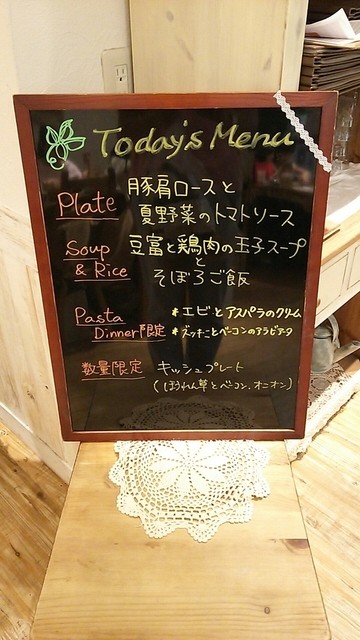 Today's Menu
Plate 豚肩ロースと
夏野菜のトマトソース
Soup & Rice 豆富と鶏肉の玉子スープ
と
そぼろご飯
Pasta *エビとアスパラのクリーム
Dinner限定 *ズッキーニとベーコンのアラビアータ
数量限定 キッシュプレート
(ほうれん草とベーコン、オニオン)